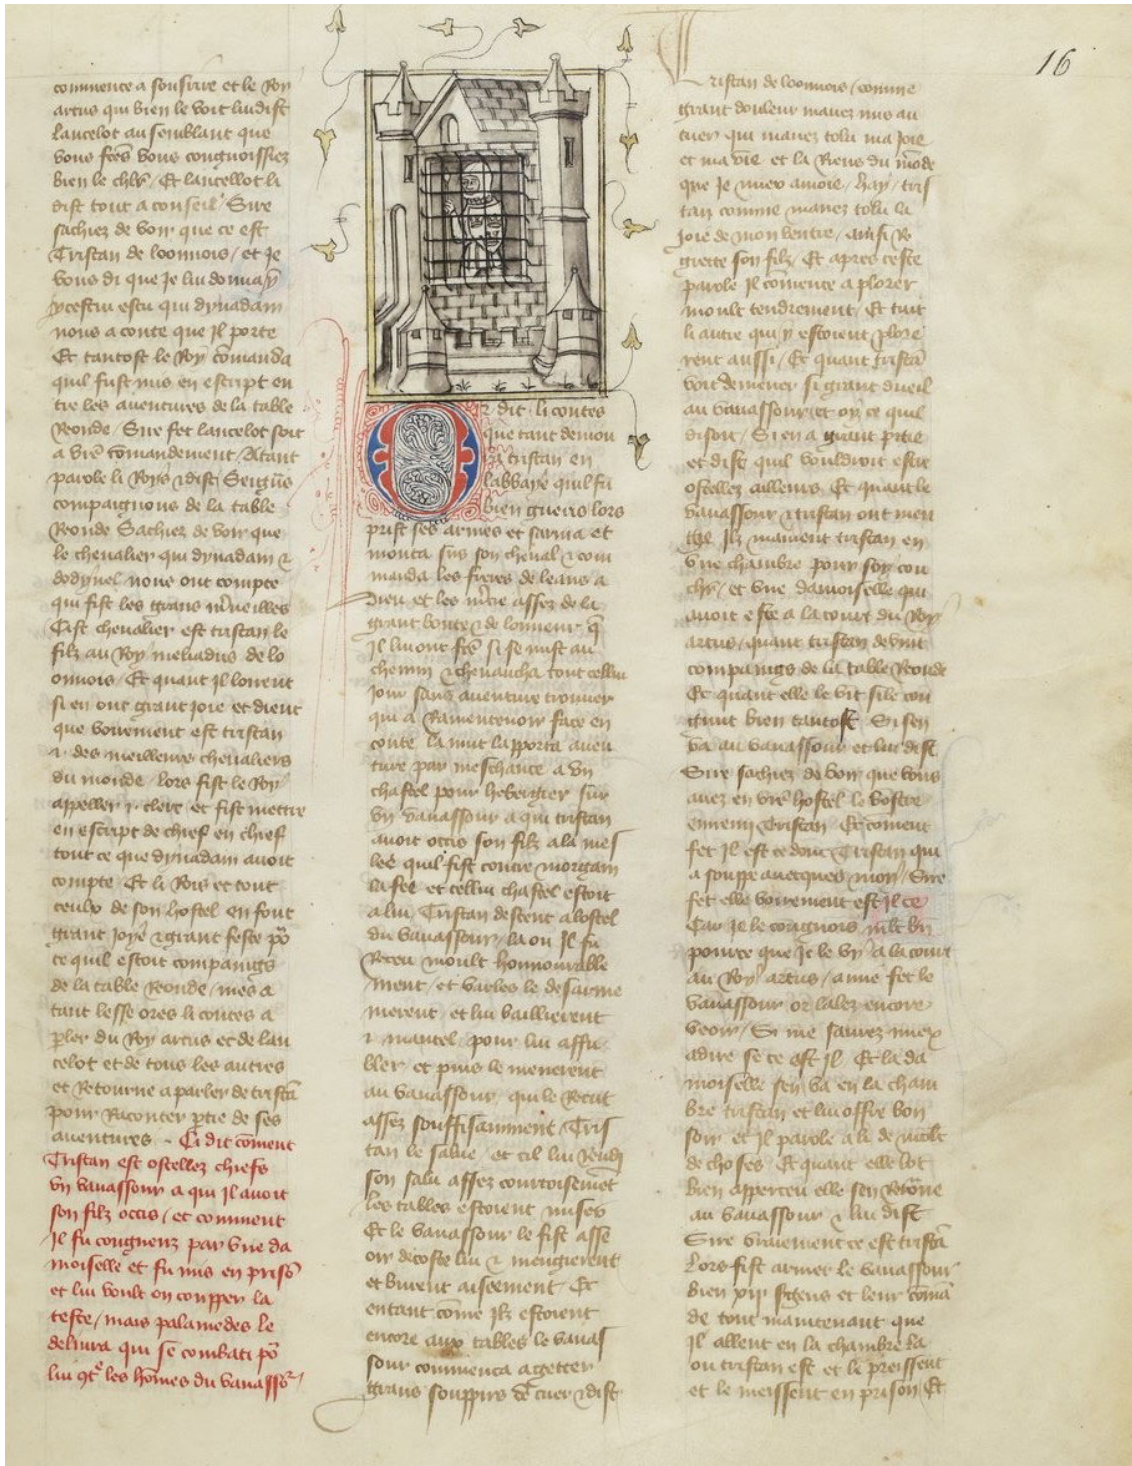 16
commence a sousrire et le Roy
artus qui bien le voit lui dist
lancelot au semblant que
vous fctes vous congnoissiez
bien le chlr / Et lancellot li
dist tout a conseil / Sire
sachiez de voir que ce est
Tristan de loonnois / et Je
vous di que Je lui donnay
ycestui escu qui dynadam
nous a conte que Il porte
Et tantost le Roy comanda
quil fust mis en escript en
tre les auentures de la table
Ronde / Sire fet lancelot soit
a vre comandement / Atant
parole li Roys & dist Seigns
compaignons de la table
Ronde Sachiez de voir que
le cheualier qui dynadam &
dodynel nous ont compte
qui fist les grans merueilles
Cist cheualier est tristan le
filz au Roy meliadus de lo
onnois / Et quant Il loirent
si en ont grant joie et dient
que voirement est tristan
.i. des meilleurs cheualiers
du monde / lors fist le Roy
appeller .i. clerc et fist mettre
en escript de chief en chief
tout ce que dynadam auoit
compte Et li Rois et tout
ceulx de son hostel en font
grant joye & grant feste po
ce quil estoit compaings
de la table Ronde / mes a
tant lesse ores li contes a
pler du Roy artus et de lan
celot et de tous les autres
et Retourne a parler de trista
pour Raconter ptie de ses
auentures – Ci dit coment
Tristan est ostellez chies
vn vauassour a qui Il auoit
son filz occis / et comment
Il fu congneuz par vne da
moiselle et fu mis en priso
et lui voult on coupper la
teste / mais palamedes le
deliura qui se combati po
lui 9tre les homes du vauassor
Or dit li contes
que tant demou
ra tristan en
labbaye quil fu
bien gueris lors
prist ses armes et sarma et
monta sus son cheual & com
manda les freres de leans a
dieu et les mcie assez de la
grant bonte & de lonneur q
Il lui ont fcte si se mist au
chemin & cheuaucha tout cellui
Jour sans auenture trouuer
qui a Ramenteuoir face en
conte la nuit lapporta auen
ture par meschance a vn
chastel pour hebergier sur
vn vauassour a qui tristan
auoit occis son filz a la mes
lee quil fist contre morgain
la fee et cellui chastel estoit
a lui Tristan descent a lostel
du vauassour / la ou Il fu
Receu moult honnourable
ment / et varles le desarme
merent / et lui baillierent
.i. mantel pour lui affu
bler et puis le menerent
au vauassour qui le Recut
assez souffisamment / Tris
tan le salue / et cil lui Rendi
son salu assez courtoisemet
les tables estoient mises
Et le vauassour le fist asse
oir decoste lui & mengierent
et burent aisement Et
entant come Ilz estoient
encore aux tables le vauas
sour commenca a getter
grans souppirs de cuer & dist
Tristan de loonnois / comme
grant douleur mauez mis au
cuer qui mauez tolu ma joie
et ma vie et la Riens du mode
que Je miex amoie / hay / tris
tan comme mauez tolu la
joie de mon ventre / ainsi Re
grette son filz / Et apres ceste
parole Il comence a plorer
moult tendrement / Et tuit
li autre qui y estoient plore
rent aussi / Et quant trista
voit demener si grant dueil
au vauassour et oy ce quil
disoit / Si en a grant pitie
et dist quil vouldroit estre
ostellez ailleurs Et quant le
vauassour & tristan ont men
gie Ilz mainent tristan en
vne chambre pour soy cou
chr / et vne damoiselle qui
auoit este a la court du Roy
artus / quant tristan deuint
compaings de la table Ronde
Et quant elle le vit si le con
gnut bien tantost Si sen
va au vauassour et lui dist
Sire sachiez de voir que vous
auez en vre hostel le vostre
ennemi Tristan Et coment
fet Il est ce donc Tristan qui
a souppe auecques moy / Sire
fet elle voirement est Il ce
Car Je le congnois mlt bn
pource que Je le vy a la court
au Roy artus / a me fet le
vauassour or lalez encore
veoir / Si me saurez miex
a dire se ce est Il Et la da
moiselle sen va en la cham
bre tristan et lui offre bon
soir et Il parole a li de molt
de choses Et quant elle lot
bien apperceu elle sen Retorne
au vauassour & lui dist
Sire vraiement ce est trista
Lors fist armer le vauassour
bien xii sgens et leur coma
de tout maintenant que
Il allent en la chambre la
ou tristan est et le preissent
et le meissent en prison / Et